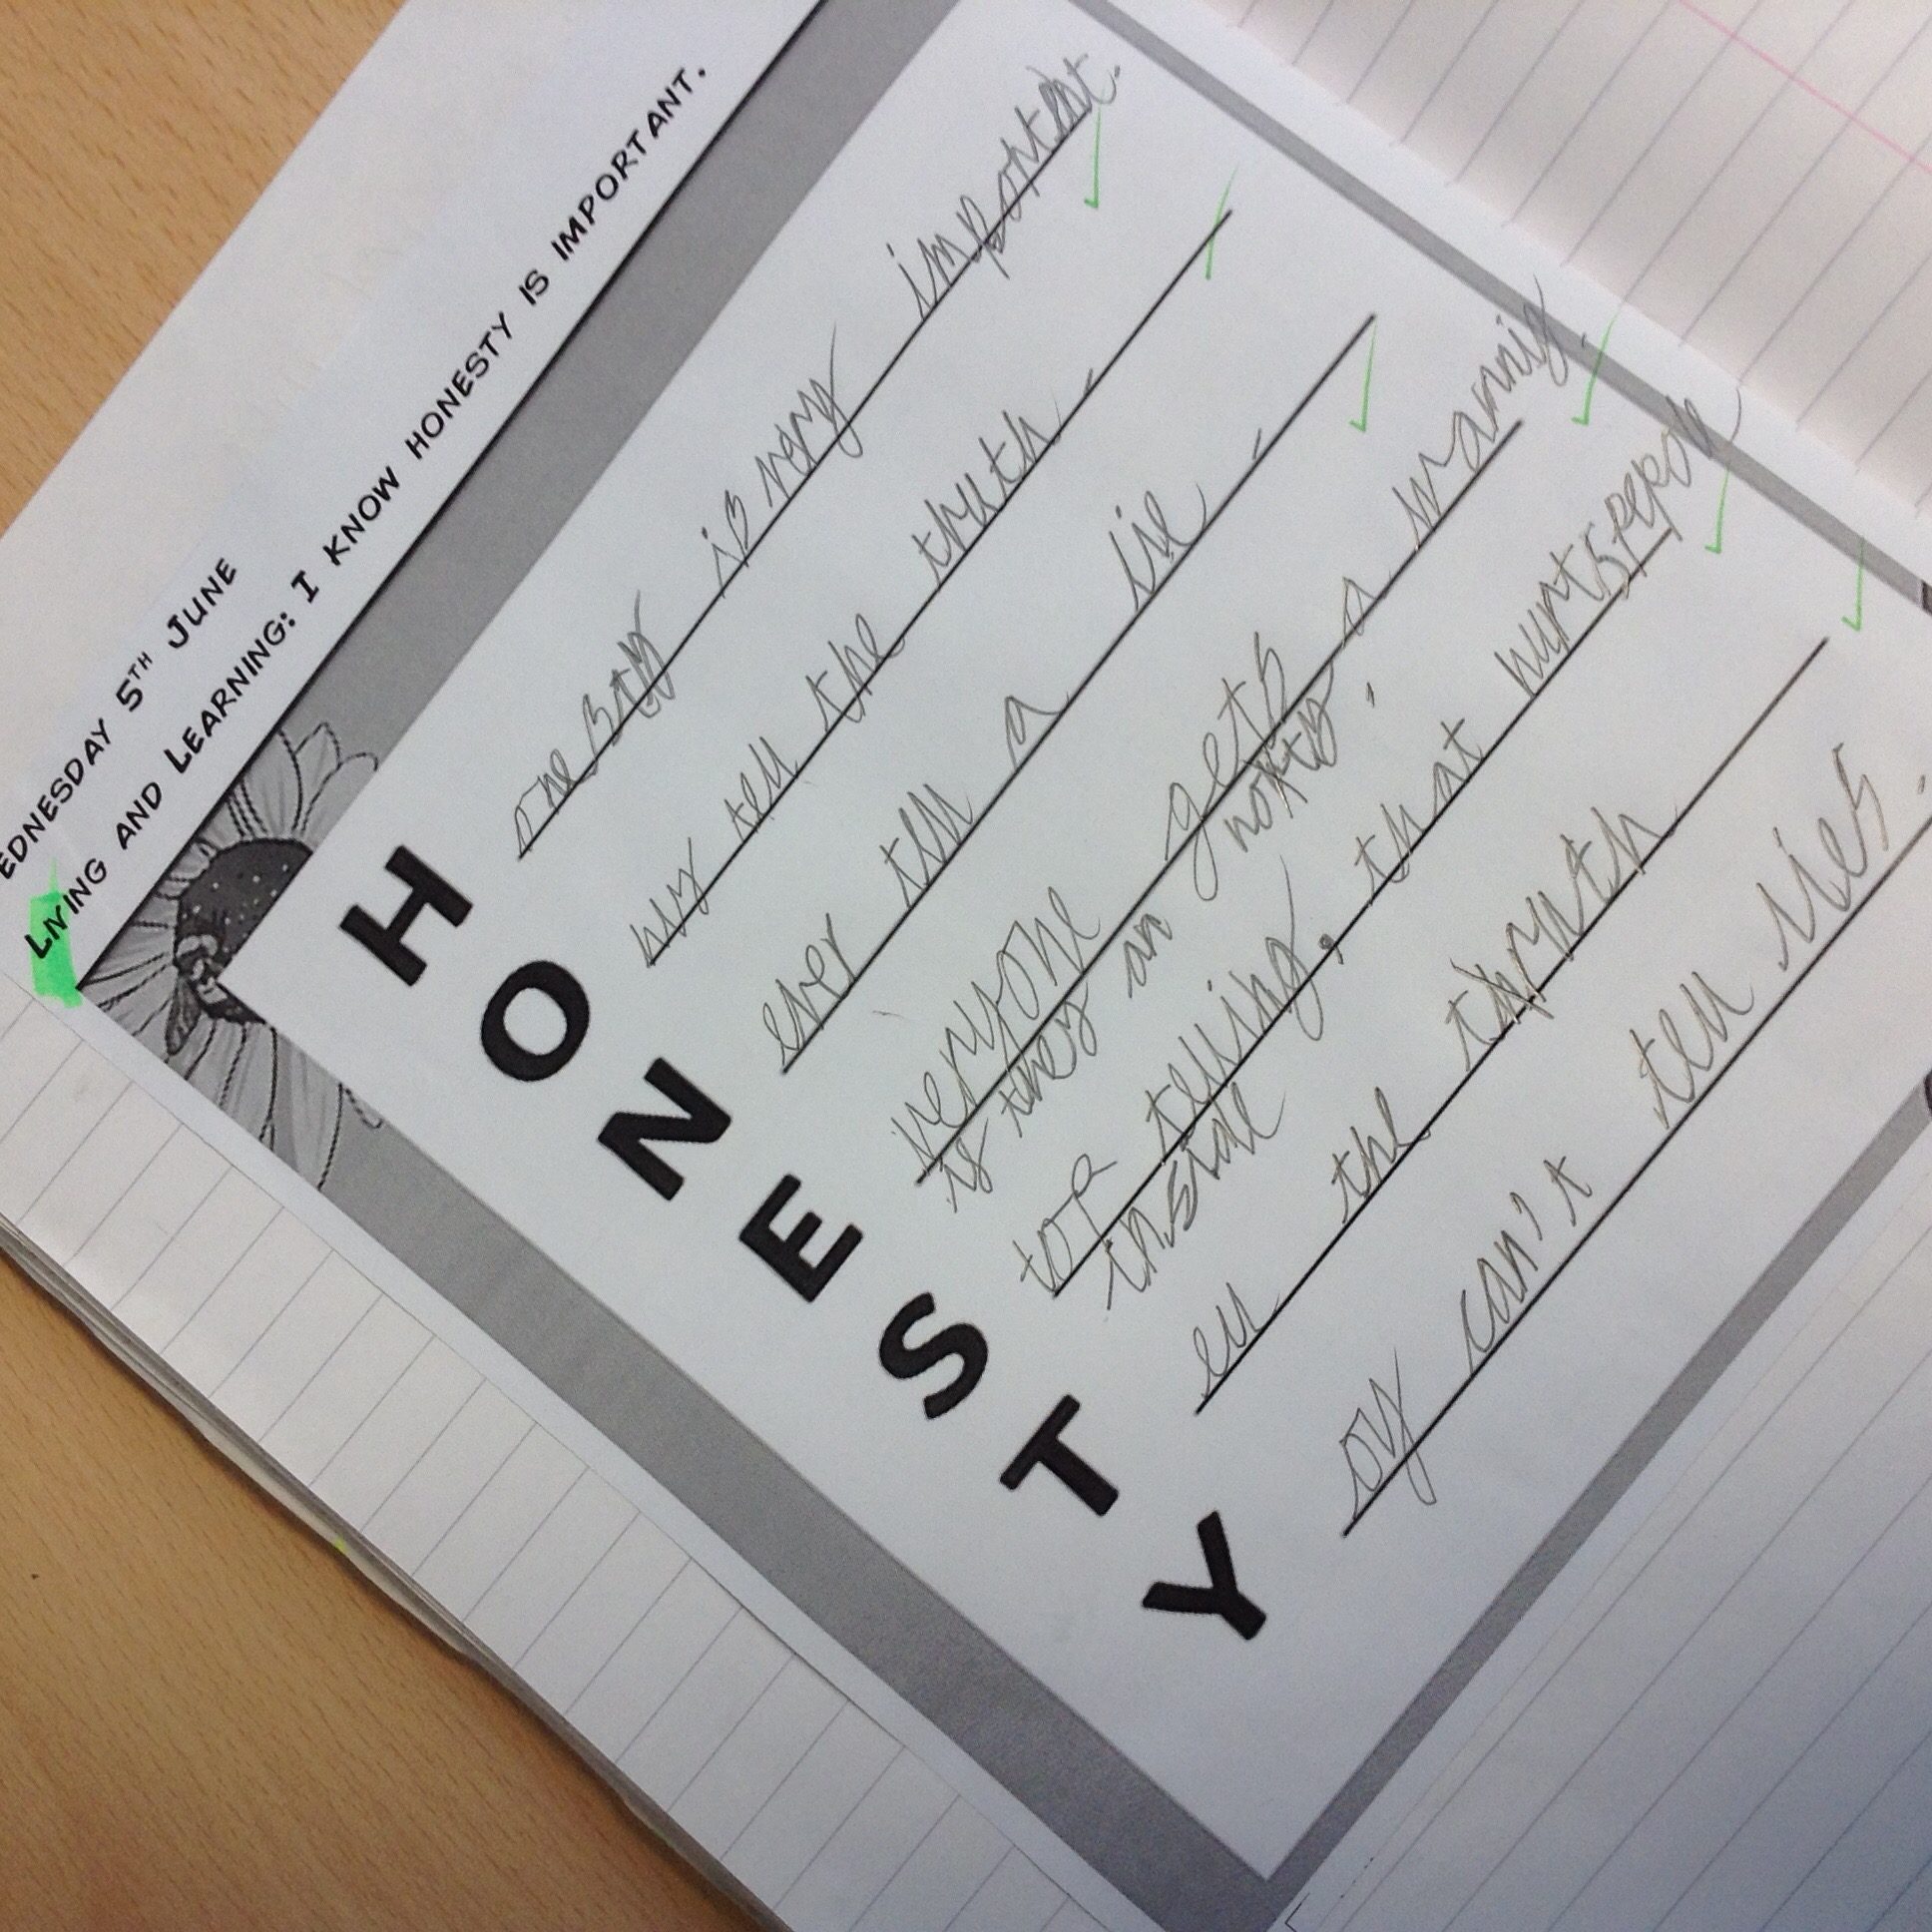 EDNESDAY 5TH JUNE
LIVING AND LEARNING: I KNOW HONESTY IS IMPORTANT.
H onesty is very important.
O tell the truth.
N ever tell a lie.
E veryone gets a
is they an
S top telling. that hurts
inside
T ell the
Y oy can't tell lies.